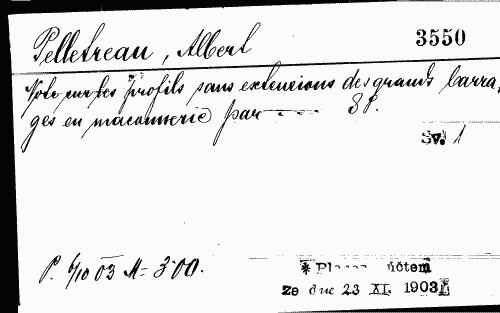 Pelletreau, Albert 3550
Note sur les profils sans extensions des grands barra,
ges en maconnerie par — 8°.
Sv. 1
P. 6/10 03 M= 3·00.
* účtem
ze dne 23 XI. 1903